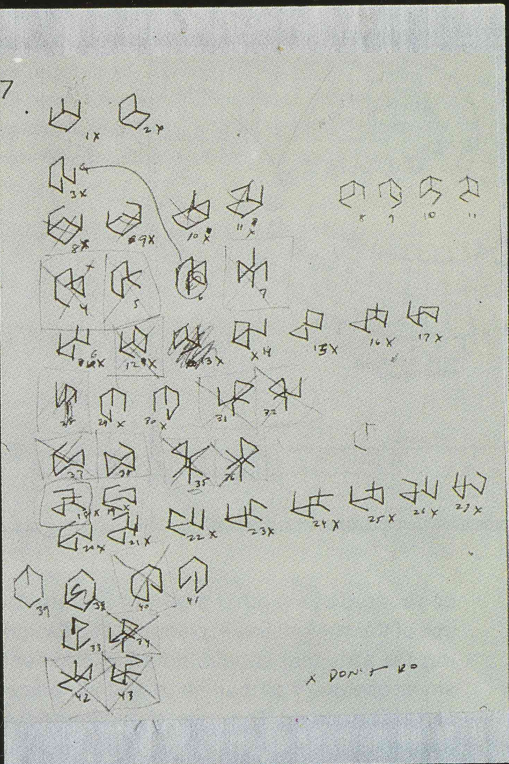 7
1X 2X
3X
8 9 10 11
8X 9X 10X 11X
4 5 6 7
12X 13X X14 15X 16X 17X
29X 30X 31 32
37 38 35 36
22X 23X 24X 25X 26X 27X
20X 21X
39 38 40 41
33 34
42 43
X DON'T DO